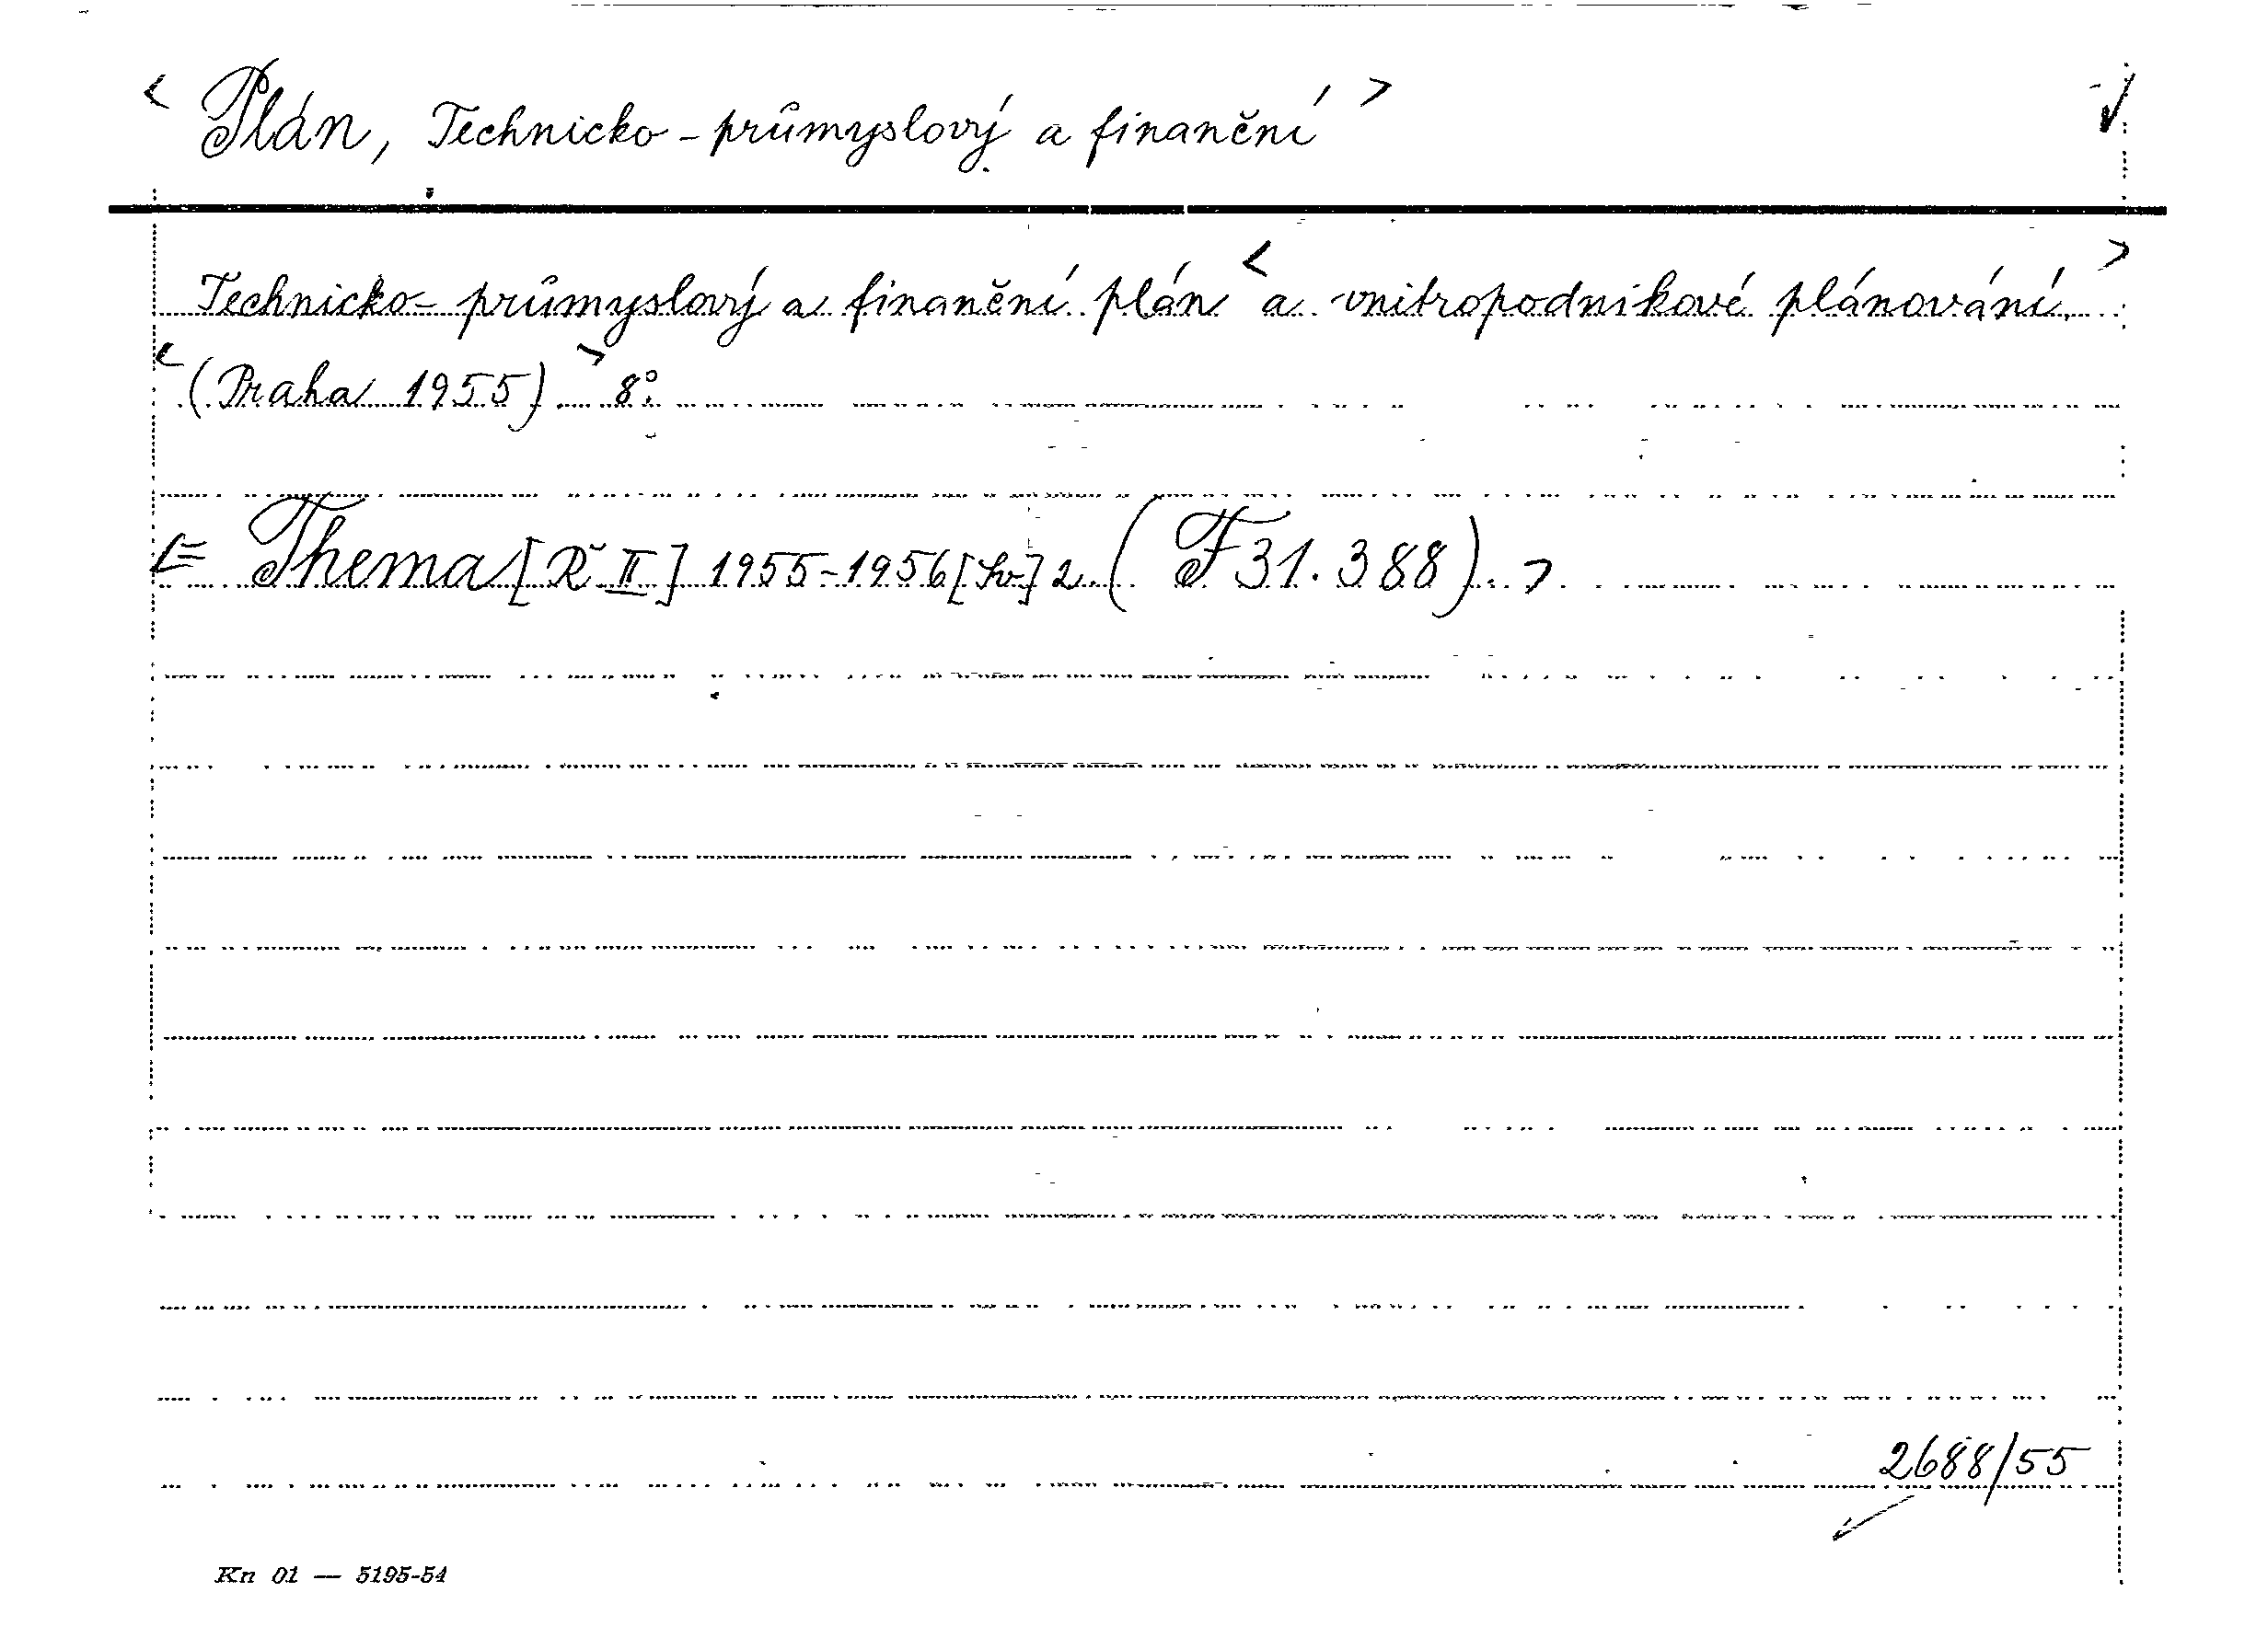 < Plán, Technicko-průmyslový a finanční >
Technicko-průmyslový a finanční plán < a vnitropodnikové plánování. >
< (Praha 1955). > 8°.
<= Thema [Ř II] 1955-1956 [sv.] 2 (F 31.388). >
2688/55
Kn 01 — 5195-54